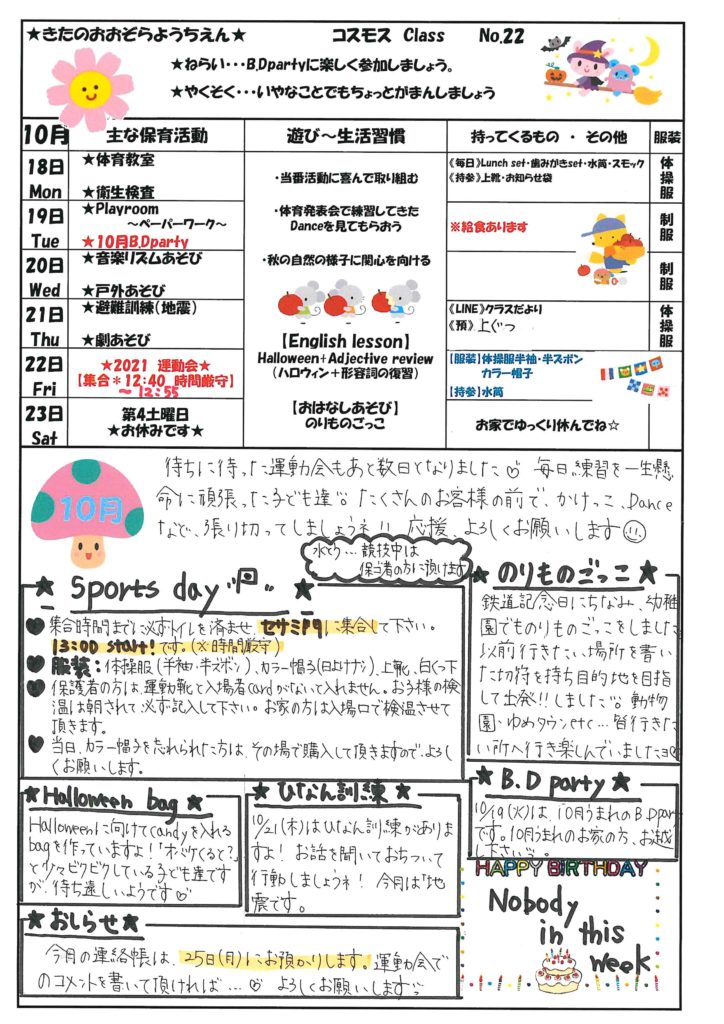 ★きたのおおぞらようちえん★ コスモス Class No.22
★ねらい・・・B.Dpartyに楽しく参加しましょう。
★やくそく・・・いやなことでもちょっとがまんしましょう
10月 主な保育活動 遊び～生活習慣 持ってくるもの ・ その他 服装
18日 Mon
★体育教室
★衛生検査
《毎日》Lunch set・歯みがきset・水筒・スモック
《持参》上靴・お知らせ袋
体操服
19日 Tue
★Playroom
～ペーパーワーク～
★10月B.Dparty
※給食あります
制服
20日 Wed
★音楽リズムあそび
★戸外あそび
制服
21日 Thu
★避難訓練(地震)
★劇あそび
《LINE》クラスだより
《預》上ぐつ
体操服
22日 Fri
★2021 運動会★
【集合＊12:40 時間厳守】
～12:55
【服装】体操服半袖・半ズボン
カラー帽子
【持参】水筒
23日 Sat
第4土曜日
★お休みです★
お家でゆっくり休んでね☆
・当番活動に喜んで取り組む
・体育発表会で練習してきた
Danceを見てもらおう
・秋の自然の様子に関心を向ける
【English lesson】
Halloween+Adjective review
(ハロウィン+形容詞の復習)
【おはなしあそび】
のりものごっこ
10月
待ちに待った運動会もあと数日となりました♡ 毎日練習を一生懸
命に頑張った子ども達。たくさんのお客様の前で、かけっこ、Dance
など、張り切ってしましょうネ!! 応援、よろしくお願いします☺
水とう…競技中は
保当者の方に頂けます
★ Sports day ★
♥ 集合時間までに必ずトイレを済ませ、セサミ門に集合して下さい。
13:00 start!です。(※時間厳守)
♥ 服装：体操服(半袖・半ズボン)、カラー帽子(日よけナシ)、上靴、白くつ下
♥ 保護者の方は、運動靴で入場者cardがないと入れません。お子様の検
温は朝されて、必ず記入して下さい。お家の方は入場口で検温させて
頂きます。
♥ 当日、カラー帽子を忘れられた方は、その場で購入して頂きますので、よろし
くお願いします。
★ のりものごっこ ★
鉄道記念日にちなみ、幼稚
園でものりものごっこをしました
以前行きたい場所を書い
た切符を持ち目的地を目指
して出発!!しました。動物
園・ゆめタウンetc…皆行きた
い所へ行き楽しんでいましたヨ
★Halloween bag★
Halloweenに向けてcandyを入れる
bagを作っていますよ!「オバケくると?」
と少々ビクビクしている子ども達です
が、待ち遠しいようです♡
★ ひなん訓練 ★
10/21(木)はひなん訓練がありま
すよ! お話を聞いておちついて
行動しましょうネ! 今月は「地
震」です。
★ B.D party ★
10/19(火)は、10月うまれのB.Dpar
です。10月うまれのお家の方、お越し
下さい。
HAPPY BIRTHDAY
Nobody
in this
week
★おしらせ★
今月の連絡帳は、25日(月)にお預かりします。運動会で
のコメントを書いて頂ければ…♡ よろしくお願いします